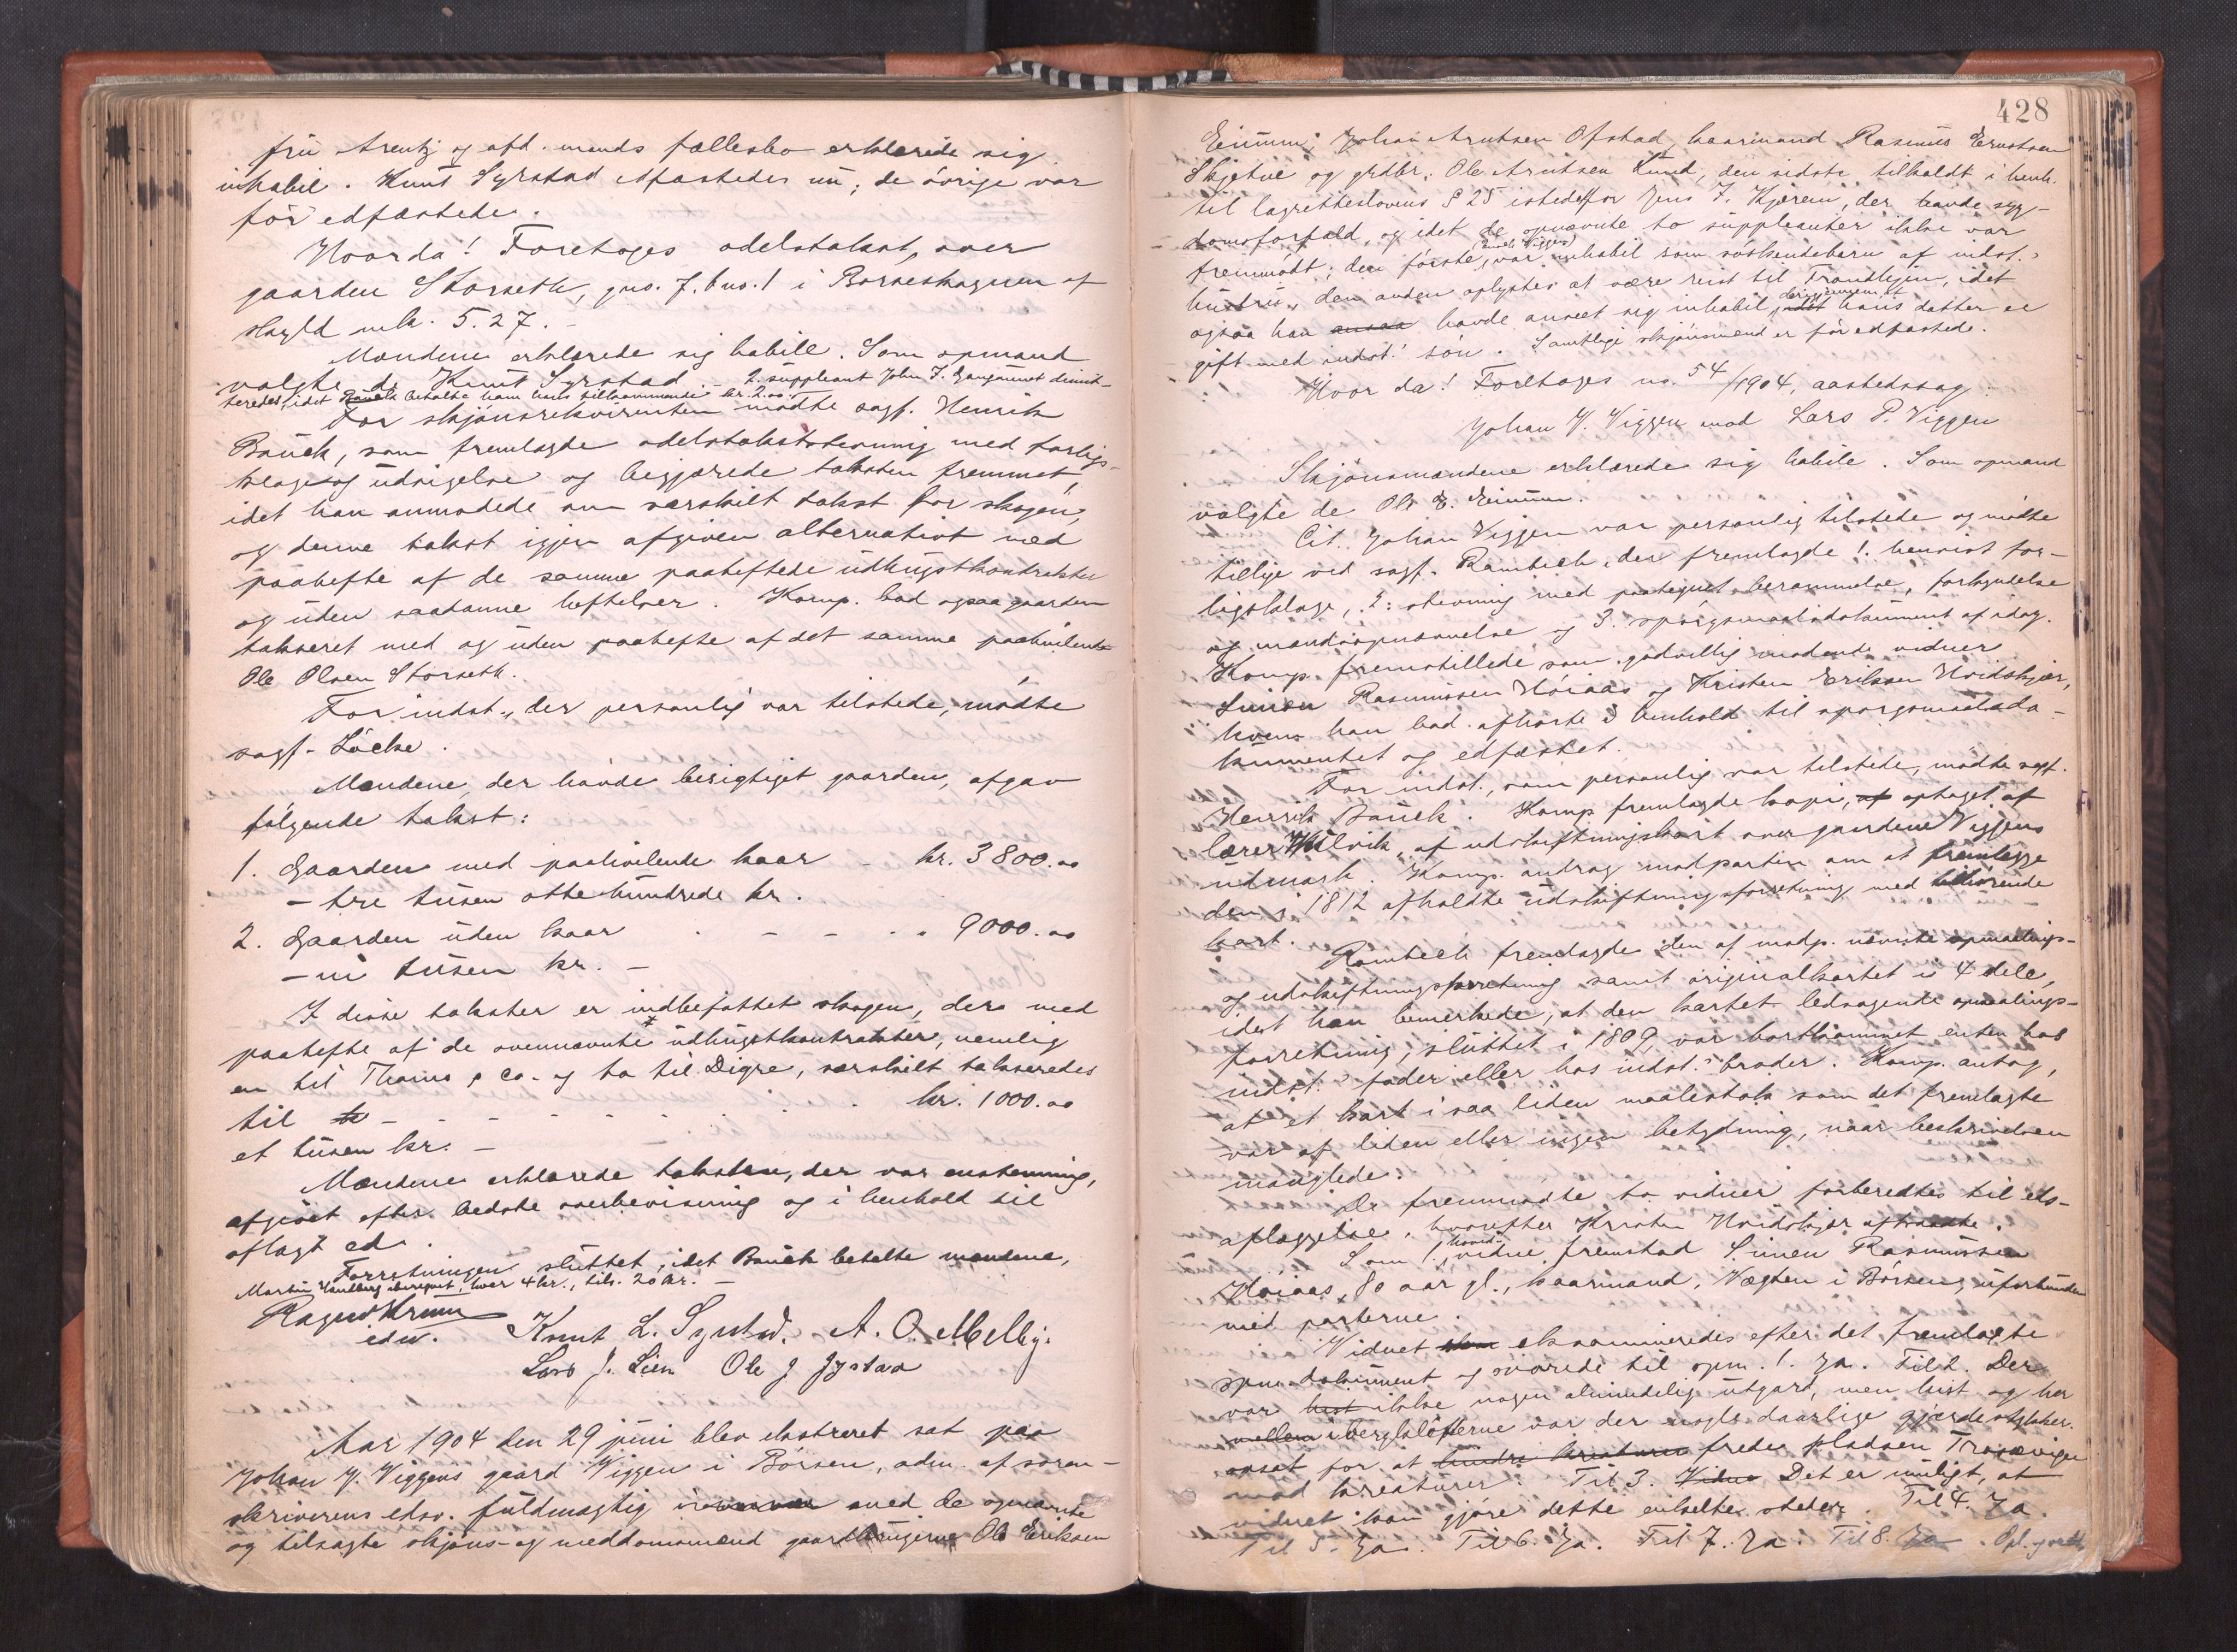 fru Arentz og afd. mands fællesbo erklærede sig
inhabil. Knut Syrstad edfæstedes nu; de övrige var
för edfæstede.
Hvorda! Foretoges odelstakst over
gaarden Storseth, gno. 7, bno. 1 i Börseskognen af
skyld mk. 5.27.–
Mændene erklærede sig habile. Som opmand
valgte de Knut Syrstad. – 2. suppleant John J. dimit-
teredes, idet Bauck betalte ham hans tilkommende kr. 2.00.
For skjönsrekvirenten mödte sagf. Henrik
Bauck, som fremlagde odelstakststevning med forligs-
klage og udvigelse og begjærede taksten fremmet,
idet han anmodede om særskilt takst for skogen,
og denne takst igjen afgiven alternativt med
paahefte af de samme paaheftede udhugstkontrakter
og uden saadanne heftelser. Komp. bad ogsaa gaarden
takseret med og uden paahefte af det samme paahvilende
Ole Olsen Storseth.
For indst., der personlig var tilstede, mödte
sagf. Löcke.
Mændene, der havde besigtiget gaarden, afgav
fölgende takst:
1. Gaarden med paahvilende kaar – kr. 3800.00
– tre tusen otte hundrede kr.
2. Gaarden uden kaar . – – . . 9000.00
– ni tusen kr. –
I disse takster er indbefattet skogen, der med
paahefte af de ovennævnte udhugstkontrakter, nemlig
en til Thams & Co. og to til Digre, særskilt takseredes
til – – – kr. 1000.00
et tusen kr. –
Mændene erklærede taksten, der var enstemmig,
afgivet efter bedste overbevisning og i henhold til
aflagt ed.
Forretningen sluttet, idet Bauck betalte mændene,
Martin iberegnet, hver 4 kr., tils. 20 kr. –
edsv. Knut L. Syrstad. A. O. Melby.
Lars J. Lien Ole J Gystad
Aar 1904 den 29 juni blev ekstraret sat paa
Johan J. Viggens gaard Viggen i Börsen, adm. af soren-
skriverens edsv. fuldmægtig med de opnævnte
og tilsagte skjöns- og meddomsmænd gaardbrugerne Ole Eriksen
428
Eiumm, Johan Arntsen Ofstad, kaarmand Rasmus Ernstsen
Skjetne og grdbr. Ole Arntsen Lund, den sidste tilkaldt i henh.
til lagretteslovens § 25 istedetfor Jens J. Kjæren, der havde syg-
domsforfald, og idet de opnævnte to suppleanter ikke var
fremmödt; den förste var inhabil som söskendebarn af indst.s
hustru, den anden oplystes at være reist til Trondhjem, idet
ogsaa han havde anseet sig inhabil, hans datter er
gift med indst.s sön. Samtlige skjönsmænd er för edfæstede.
Hvor da! Foretoges no. 54/1904, aastedssag:
Johan J. Viggen mod Lars P. Viggen
Skjönsmændene erklærede sig habile. Som opmand
valgte de Ole E. Eiumm.
Cit. Johan Viggen var personlig tilstede og mödte
tillige ved sagf. Rambech, der fremlagde 1. henvist for-
ligsklage, 2: stevning med paategnet berammelse, forkyndelse
og mændsopnævnelse og 3. spörgsmaalsdokument af idag.
Komp. fremstillede som godvillig mödende vidner
Simen Rasmussen Höiaas og Kristen Eriksen Hvidskjær,
hvem han bad afhörte i henhold til spörgsmaalsdo-
kumentet og edfæstet.
For indst., som personlig var tilstede, mödte sagf.
Henrik Bauck. Komp. fremlagde kopi, optaget af
lærer Hilvik, af udskiftningskart over gaardene Viggens
udmark. Komp. androg modparten om at fremlægge
den i 1812 afholdte udskiftningsforretning med tilhörende
kart.
Rambech fremlagde den af modp. nævnte opmaalings-
og udskiftningsforretning samt originalkartet i 4 dele,
idet han bemerkede, at den kartet ledsagende opmaalings-
forretning, sluttet i 1809, var bortkommet enten hos
indst.s fader eller hos indst.s broder. Komp. antog,
at et kart i saa liden maalestok som det fremlagte
var af liden eller ingen betydning, naar beskrivelsen
manglede.
De fremmödte to vidner forberedtes til eds-
aflæggelse, hvorefter Kristen Hvidskjær aftraadte.
Som 1. hovedvidne fremstod Simen Rasmussen
Höiaas, 80 aar gl., kaarmand, Vægten i Börsen, uforbunden
med parterne.
Vidnet eksamineredes efter det fremlagte
spm.dokument og svarede til spm. 1. Ja. Til 2. Der
var ikke nogen almindelig utgard, men hist og her
i bergklöfterne var der nogle daarlige gjærdestykker
opsat for at frede pladsen Trosavigen
mod kreaturer. Til 3. Det er muligt, at
vidnet kan gjöre dette enkelte steder. Til 4. Ja.
Til 5. Ja. Til 6. Ja. Til 7. Ja. Til 8. Ja. Opl.